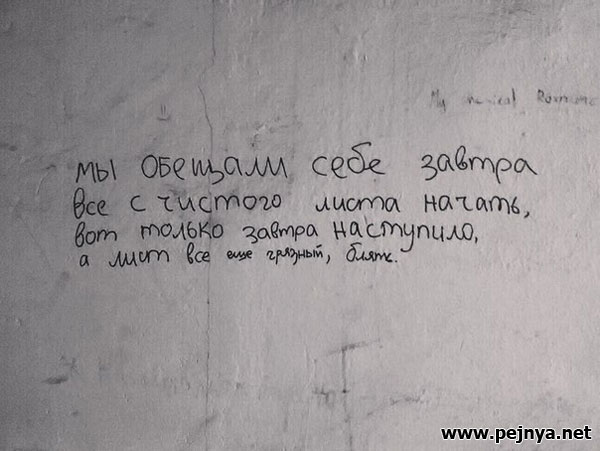 мы обещали себе завтра
все с чистого листа начать,
вот только завтра наступило,
а лист все еще грязный, блять.
www.pejnya.net